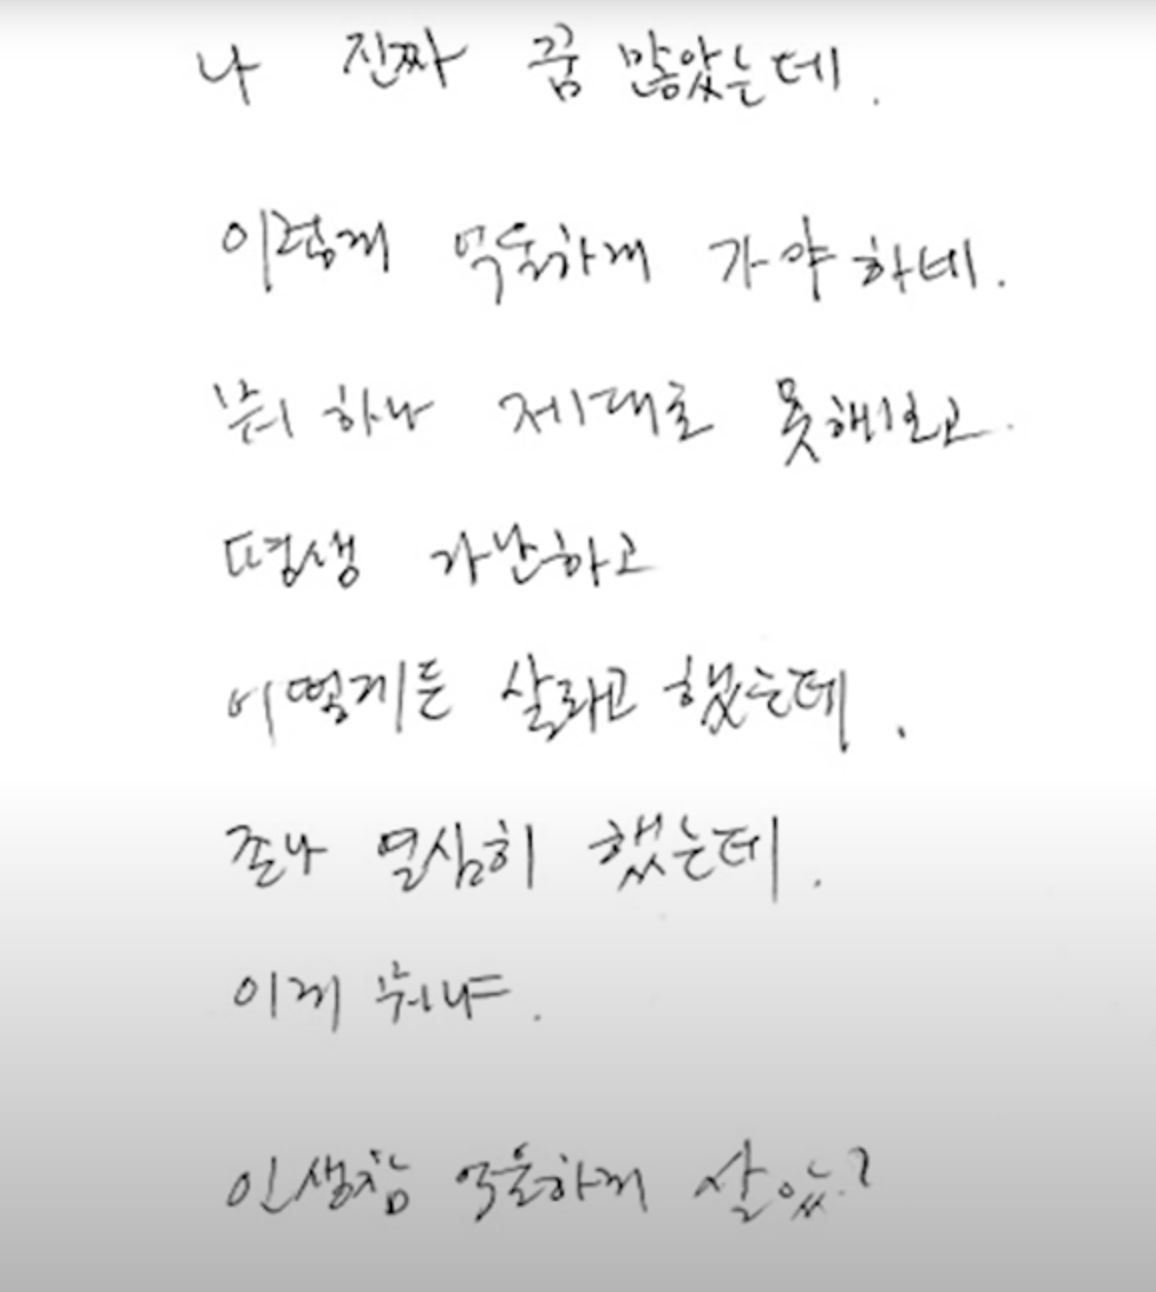 나 진짜 꿈 많았는데.
이렇게 억울하게 가야하네.
뭐 하나 제대로 못해보고.
평생 가난하고
어떻게든 살라고 했는데.
존나 열심히 했는데.
이게 뭐냐.
인생참 억울하게 살았?